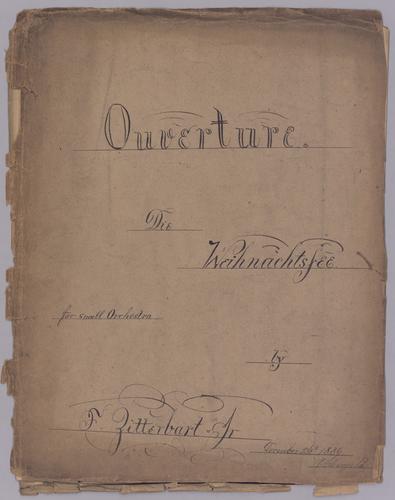 Ouverture.
Die
Weihnachtsfee
for small Orchestra
by
F. Zitterbart Jr
December 1886